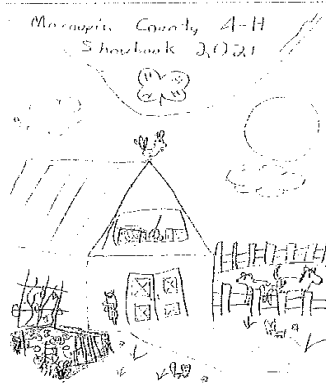 Macoupin County 4-H
Showbook 2021